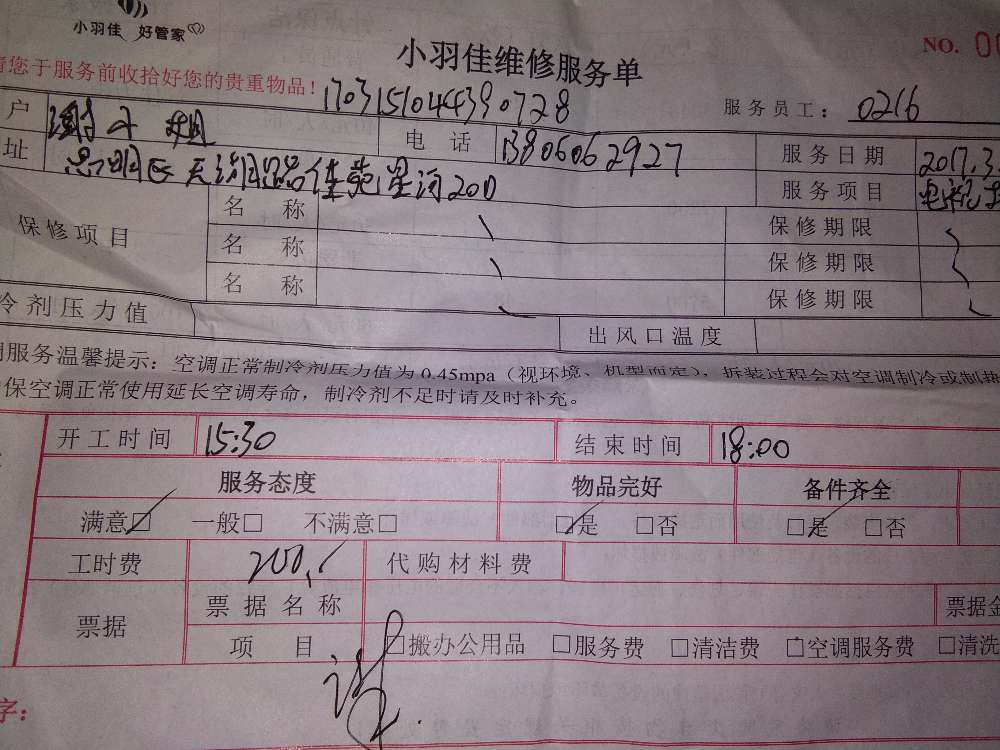 小羽佳 好管家
小羽佳维修服务单
NO. 0
请您于服务前收拾好您的贵重物品！
1703151044390728
服务员工： 0216
户 谢小姐 电话 13806062927 服务日期 2017.3.
址 思明区天湖路佳苑星河200 服务项目
保修项目 名称 保修期限
名称 保修期限
名称 保修期限
冷剂压力值 出风口温度
服务温馨提示：空调正常制冷剂压力值为0.45mpa（视环境、机型而定），拆装过程会对空调制冷或制热
保空调正常使用延长空调寿命，制冷剂不足时请及时补充。
开工时间 15:30 结束时间 18:00
服务态度 物品完好 备件齐全
满意☑ 一般□ 不满意□ ☑是 □否 ☑是 □否
工时费 200 代购材料费
票据 票据名称 票据金
项目 □搬办公用品 □服务费 □清洁费 □空调服务费 □清洗
字：